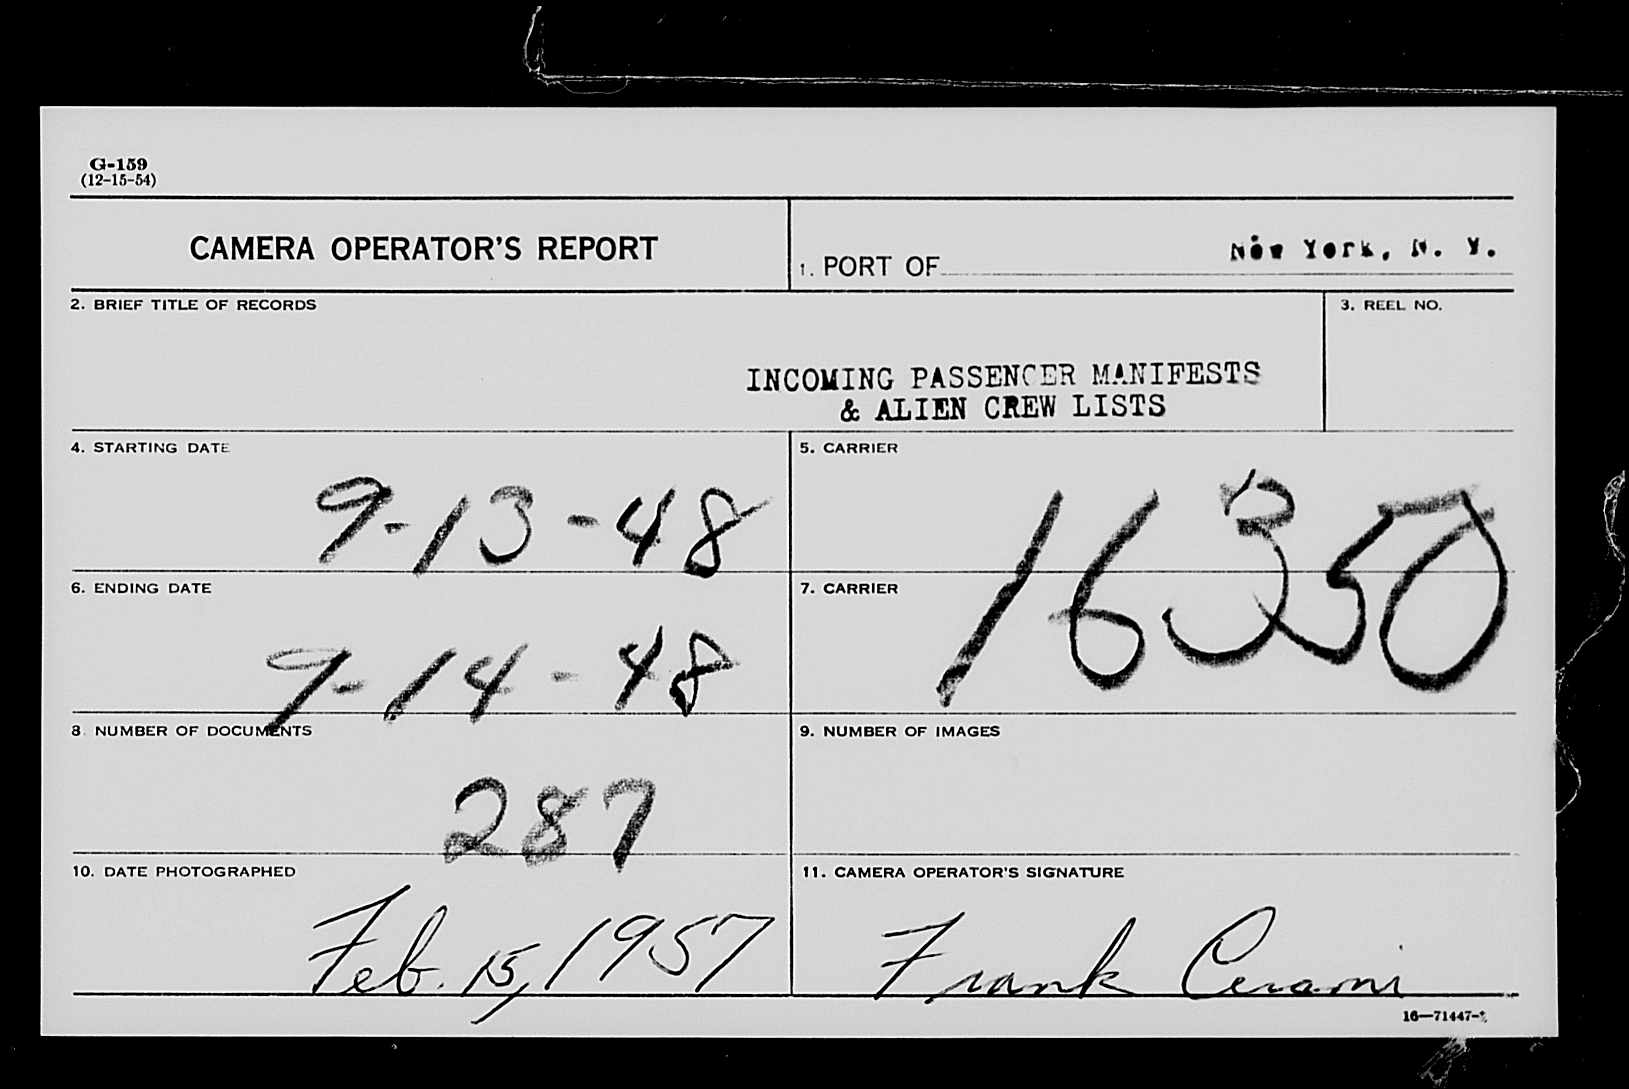 G-159
(12-15-54)
CAMERA OPERATOR'S REPORT
1. PORT OF New York, N. Y.
2. BRIEF TITLE OF RECORDS
3. REEL NO.
INCOMING PASSENGER MANIFESTS
& ALIEN CREW LISTS
4. STARTING DATE
9-13-48
5. CARRIER
16350
6. ENDING DATE
9-14-48
7. CARRIER
8. NUMBER OF DOCUMENTS
287
9. NUMBER OF IMAGES
10. DATE PHOTOGRAPHED
Feb. 15, 1957
11. CAMERA OPERATOR'S SIGNATURE
Frank Cerami
16—71447-